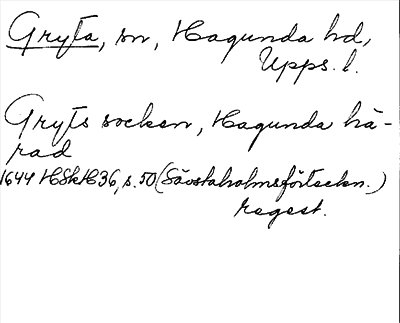 Gryta, sn, Hagunda hd,
Upps. l.
Gryts socken, Hagunda hä-
rad
1644 HSkH36, s. 50 (Sävstaholmsförteckn.)
regest.